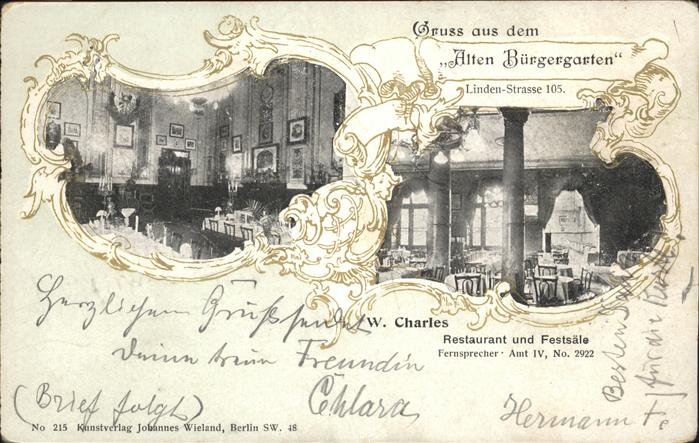 Gruss aus dem
„Alten Bürgergarten“
Linden-Strasse 105.
W. Charles
Restaurant und Festsäle
Fernsprecher · Amt IV, No. 2922
Herzlichen Gruß sendet
Deine treue Freundin
Chlara
(Brief folgt)
Besten Dank
für die Karte!
Hermann
No 215 Kunstverlag Johannes Wieland, Berlin SW. 48